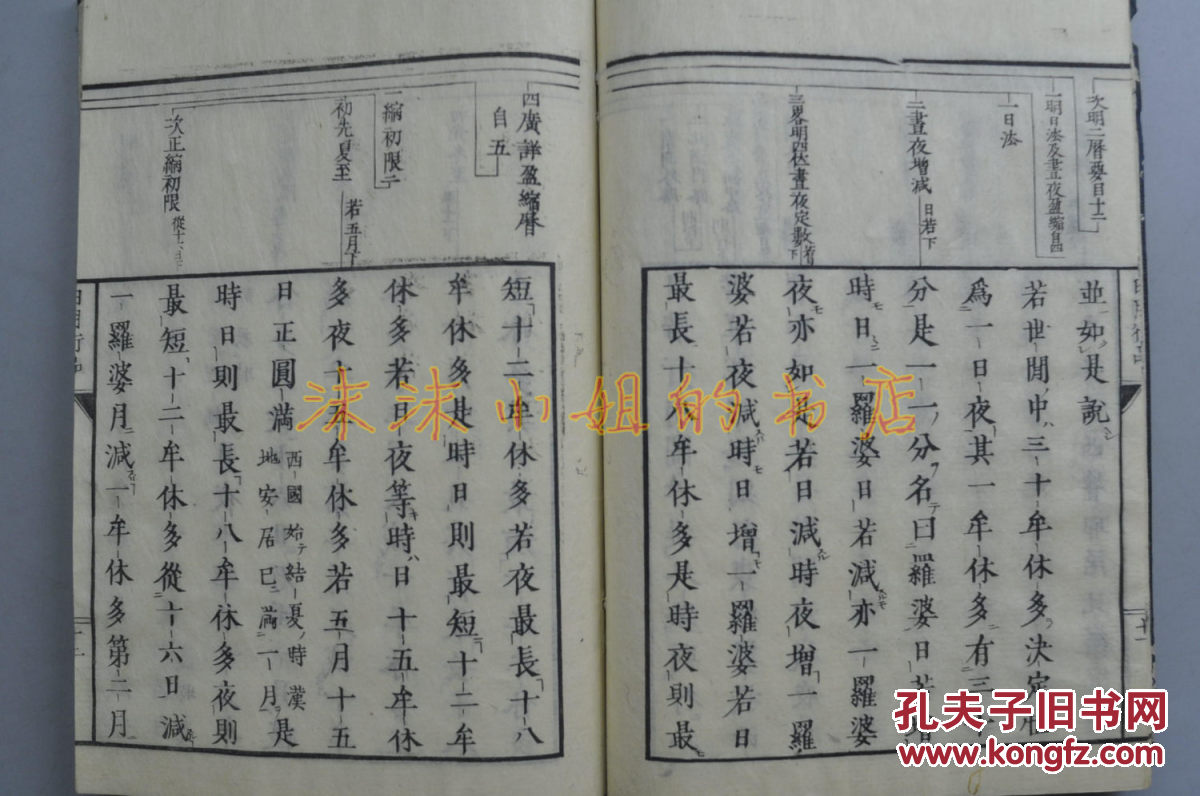 次明二曆要目十二
一明日法及晝夜盈縮自四
一日法
二晝夜增減
日若下
三畧明四伏晝夜定數
並如是說
若世間中三十牟休多決定
為一日夜其一牟休多有三
分是一一分名曰羅婆日若
時日一羅婆日若減亦一羅婆
夜亦如是若日減時夜增一羅
婆若夜減時日增一羅婆若日
最長十八牟休多是時夜則最
四廣詳盈縮曆
自五
一縮初限二
初先夏至
若五月下
次正縮初限
短十二牟休多若夜最長十八
牟休多是時日則最短十二牟
休多若日夜等時日十五牟休
多夜十五牟休多若五月十五
日正圓滿西國始結夏時漢地安居已滿一月是
時日則最長十八牟休多夜則
最短十二牟休多從十六日減
一羅婆月減一牟休多第二月
沫沫小姐的书店
孔夫子旧书网
www.kongfz.com